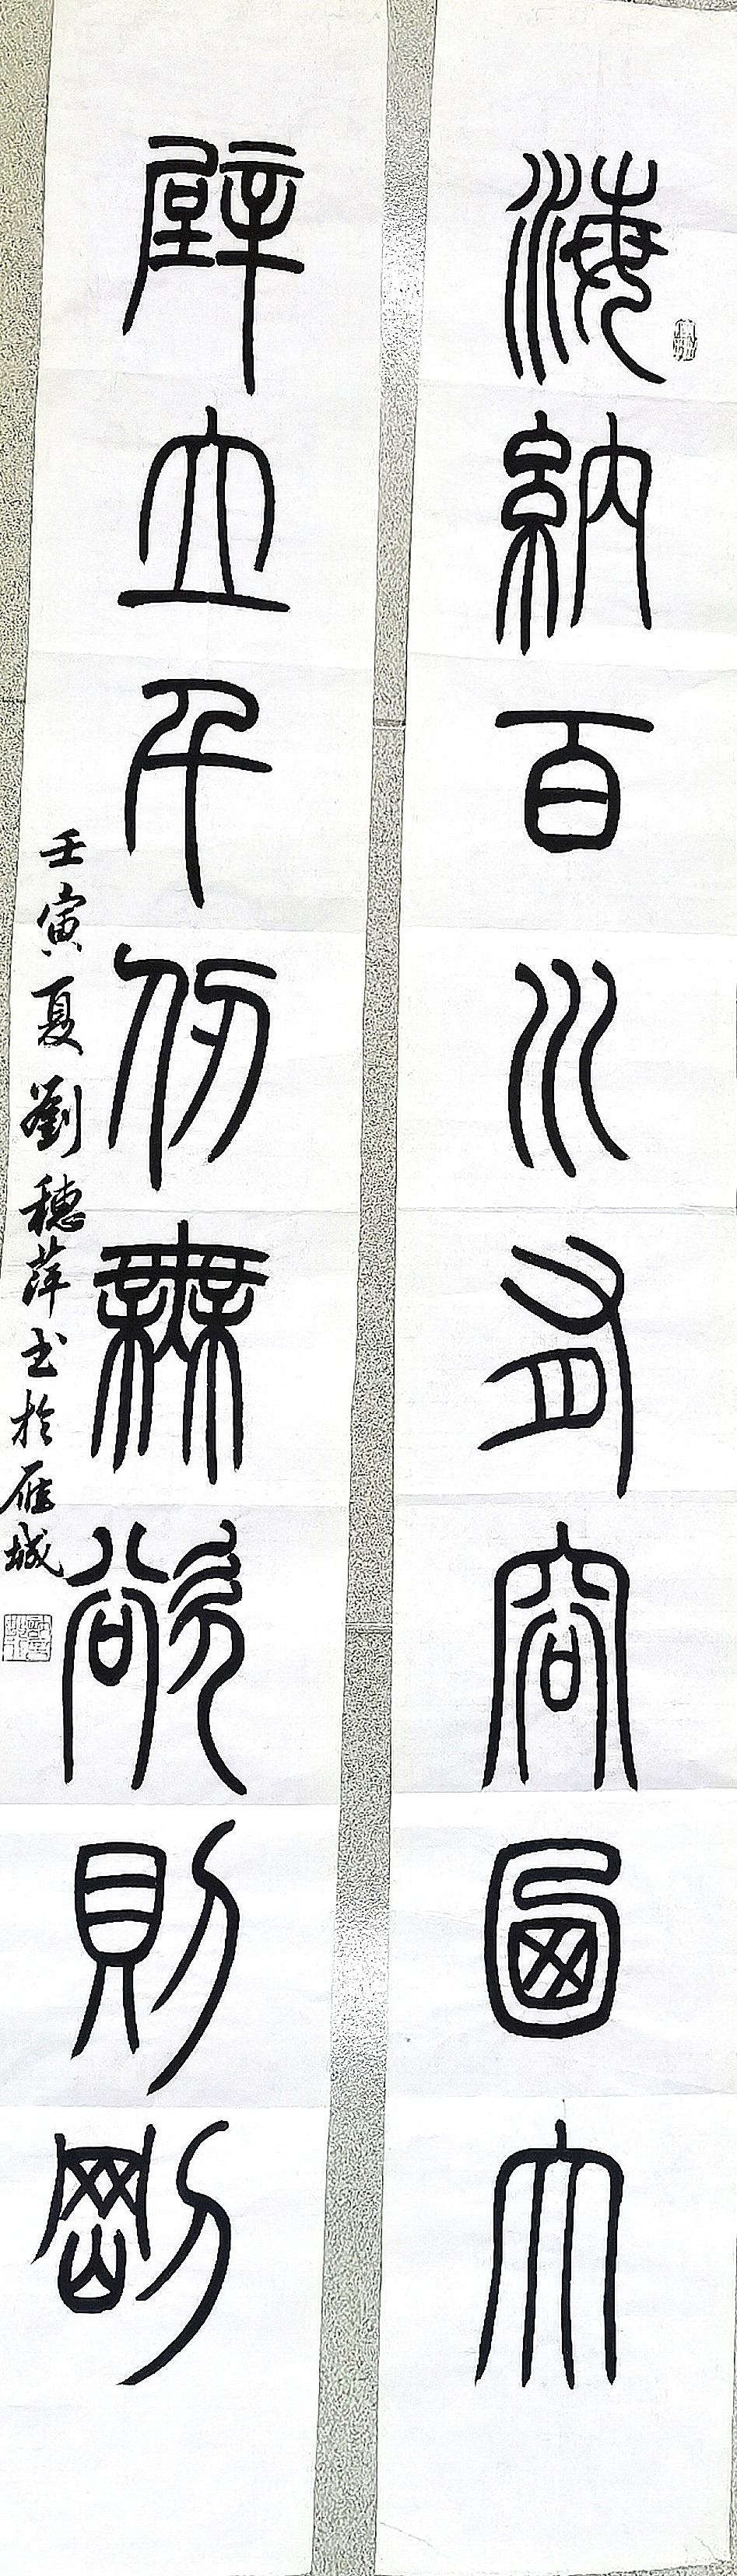 海納百川有容迺大
壁立千仞無欲則剛
壬寅夏劉穗萍书於雁城